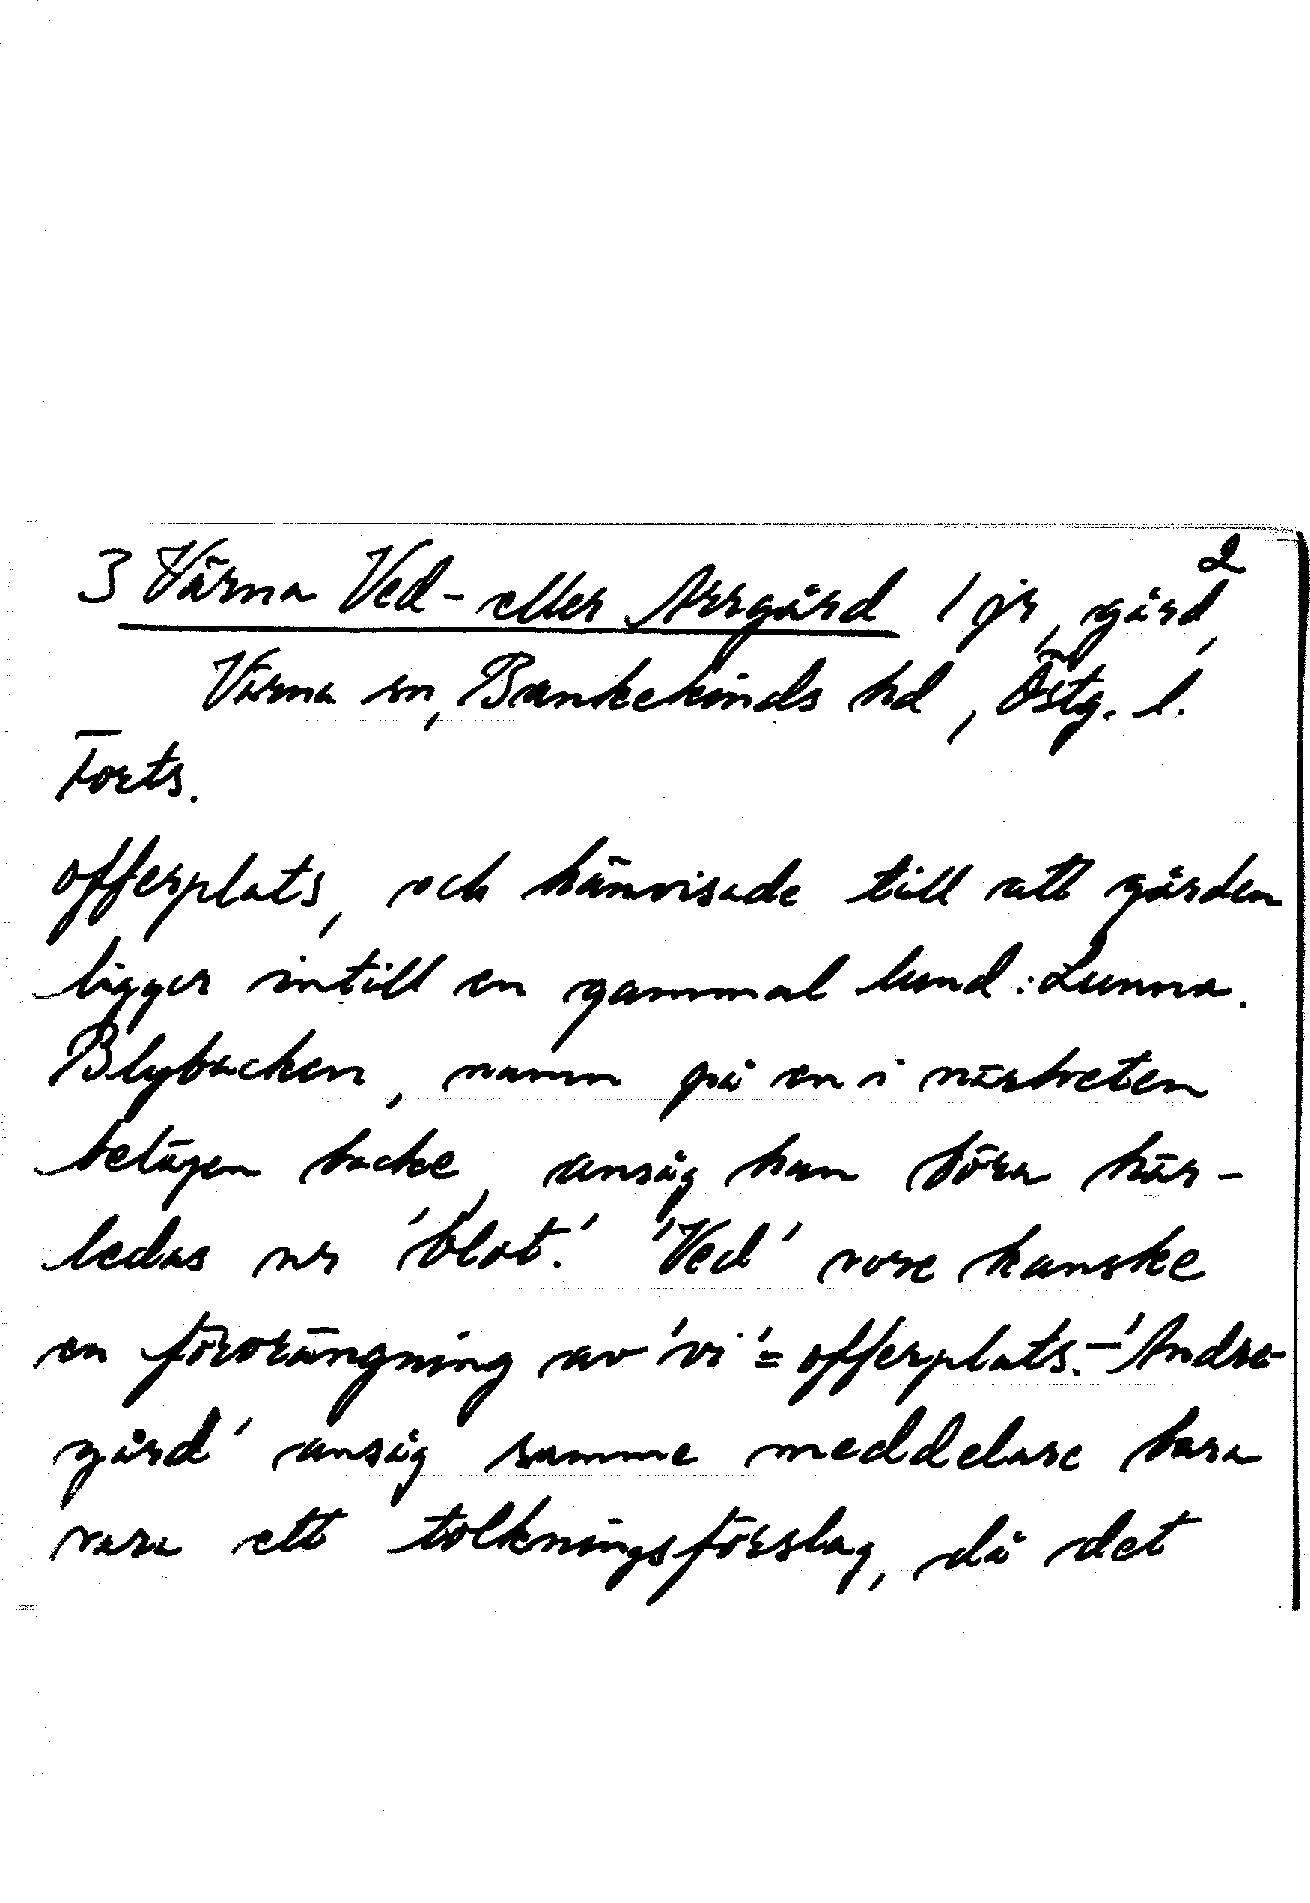 2
3 Värna Ved- eller Arrgård 1 jr, gård,
Värna sn, Bankekinds hd, Östg. l.
Forts.
offerplats, och hänvisade till att gården
ligger intill en gammal lund: Lunna.
Blybacken, namn på en i närheten
belägen backe, ansåg han böra här-
ledas ur 'blot.' 'Ved' vore kanske
en förvrängning av 'vi' = offerplats. - 'Andra-
gård' ansåg samme meddelare bara
vara ett tolkningsförslag, då det